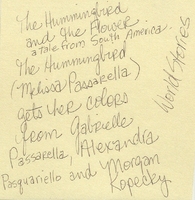 The Hummingbird
and the Flower
a tale from South America.
The Hummingbird
(Melissa Passarella)
gets her colors
from Gabrielle
Passarella, Alexandra
Pasquariello and Morgan
Kopecky
World Stories